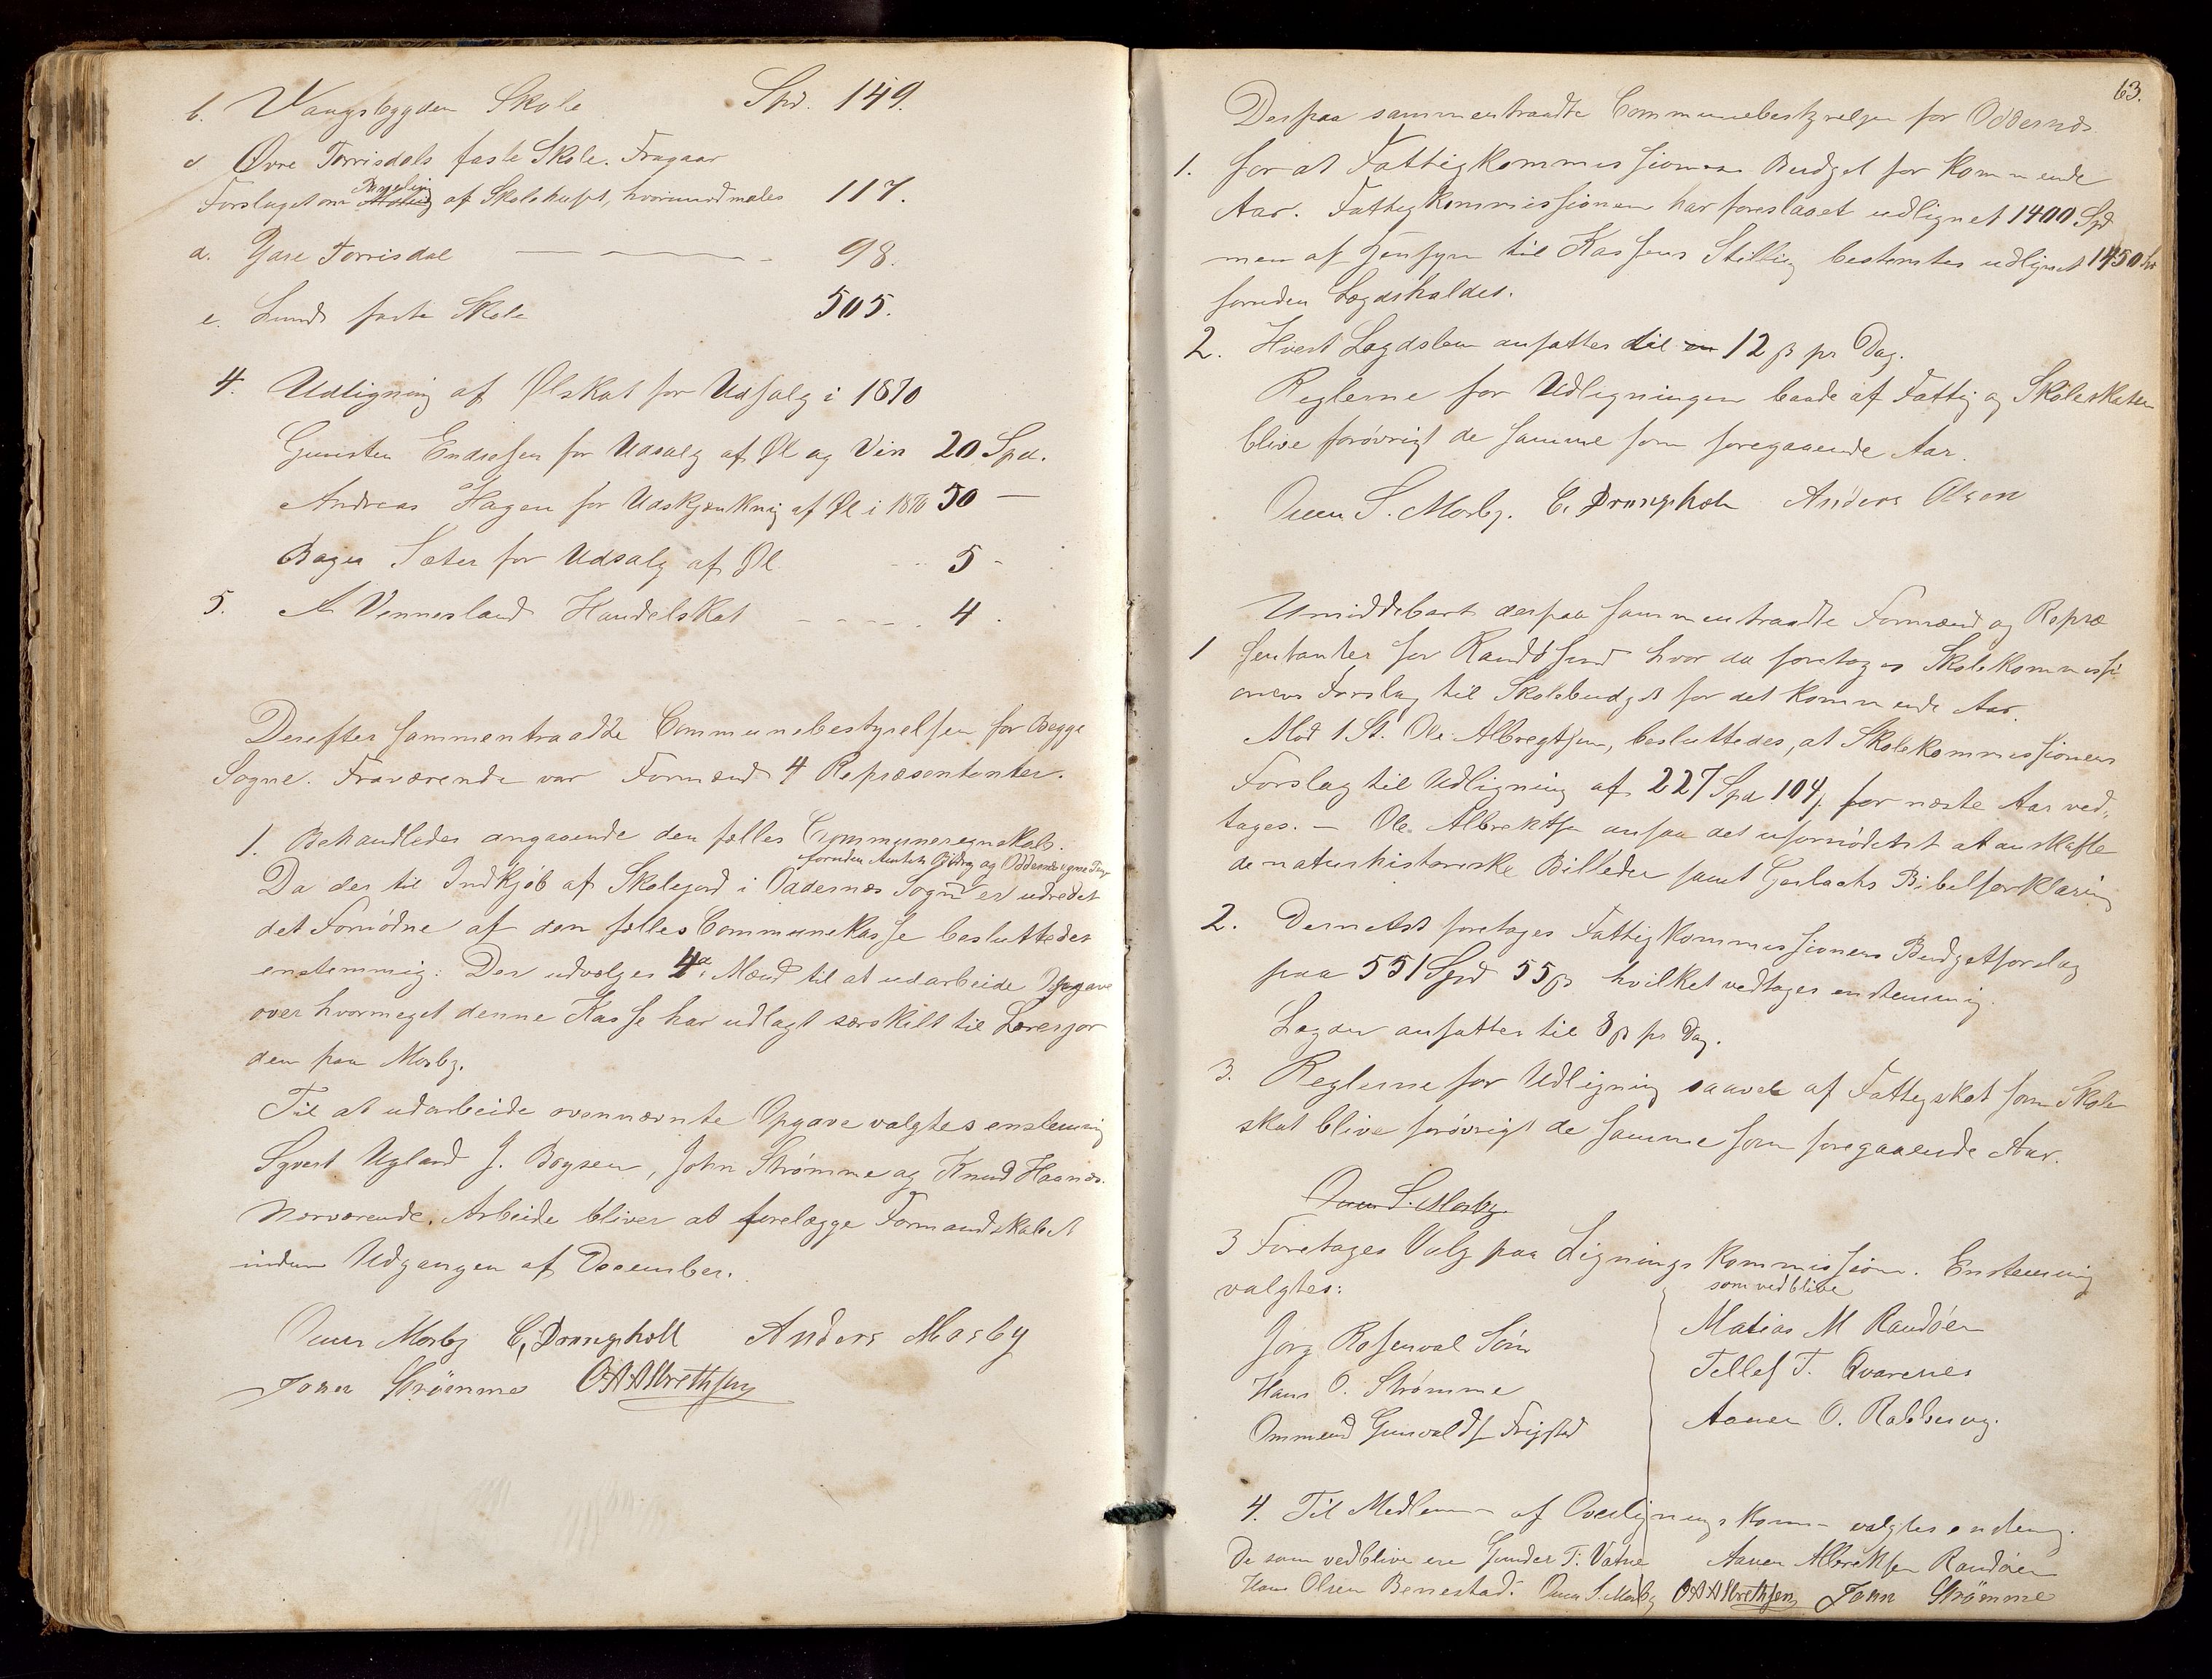 b. Vangsbygden Skole Spd. 149.
c Øvre Torrisdals faste Skole. Fragaar
Forslaget om af Skolehuset, hvorimod males 117.
d. Ytre Torrisdal — — — 98.
e. Lunds faste Skole 505.
4. Udligning af Ølskat for Udsalg i 1870
Gunsten Endresen for Udsalg af Øl og Vin 20 Spd.
Andreas Hagen for Udskjænkning af Øl i 1870 50 —
Bager Sæter for Udsalg af Øl -- 5 -
5. A Vennesland Handelskat - - - - . 4 .
Derefter sammentraadte Communebestyrelsen for Begge
Sogne. Fraværende var Formænd 4 Repræsentanter.
1. Behandledes angaaende den fælles Communeregnskab.
foruden Amtets Bidrag og Oddernæs egne
Da der til Indkjøb af Skolejord i Oddernæs Sogn er udredet
det Fornødne af den fælles Communekasse besluttedes
enstemmig: Der udvælges 4 Mænd til at udarbeide Opgave
over hvormeget denne Kasse har udlagt særskilt til Lærerjor
den paa Mosby.
Til at udarbeide ovennævnte Opgave valgtes enstemmig
Syvert Ugland J. Boysen, John Strømme og Knud Haanæs.
Nærværende Arbeide bliver at forelægge Formandskabet
inden Udgangen af December.
Omer Mosby C. Drangsholt Anders Mosby
John Strömme OAAlbrethsen
63.
Derpaa sammentraadte Communebestyrelsen for Oddernæs.
1. for at Fattigkommissionens Budget for kommende
Aar. Fattigkommissionen har foreslaaet udlignet 1400 Spd
men af Hensyn til Kassens Stilling bestemtes udlignet 1450
foruden Lægdsholdet.
2. Hvert Lægdslem ansattes til 12 β pr Dag.
Reglerne for Udligningen baade af Fattig og Skoleskatten
blive forøvrigt de samme som foregaaende Aar.
Omer S. Mosby. C. Drangsholt Anders Olsen
Umiddelbart derpaa sammentraadte Formænd og Repræ
1 sentanter for Randøsund hvor da foretoges Skolekommissi
onens Forslag til Skolebudget for det kommende Aar.
Mod 1 St. Ole Albregtsen, besluttedes, at Skolekommissionens
Forslag til Udligning af 227 Spd 104 β for næste Aar ved-
tages. — Ole Albrektsen ansaa det ufornødent at anskaffe
de naturhistoriske Billeder samt Gerlachs Bibelforklaring
2. Dernæst foretoges Fattigkommissionens Budgetforslag
paa 551 Spd 55 β hvilket vedtages enstemmig.
Lægden ansattes til 8 β pr Dag.
3. Reglerne for Udligning saavel af Fattigskat som Skole
skat blive forøvrigt de samme som foregaaende Aar.
Omer S. Mosby.
3 Foretages Valg paa Ligningskommission. Enstemmig
valgtes: som vedblive
Jørg Rosenval Sòm Matias M Randøen
Hans O. Strømme Tellef T. Qvarenes
Ommund Gunvalds Frigstad Aanen O. Rabbersvig.
4. Til Medlem af Overligningskom valgtes enstemg.
De som vedblive ere Gunder T. Vatne Aanen Albrektsen Randøen
Hans Olsen Benestad. Omer S. Mosby OAAlbrethsen John Strömme